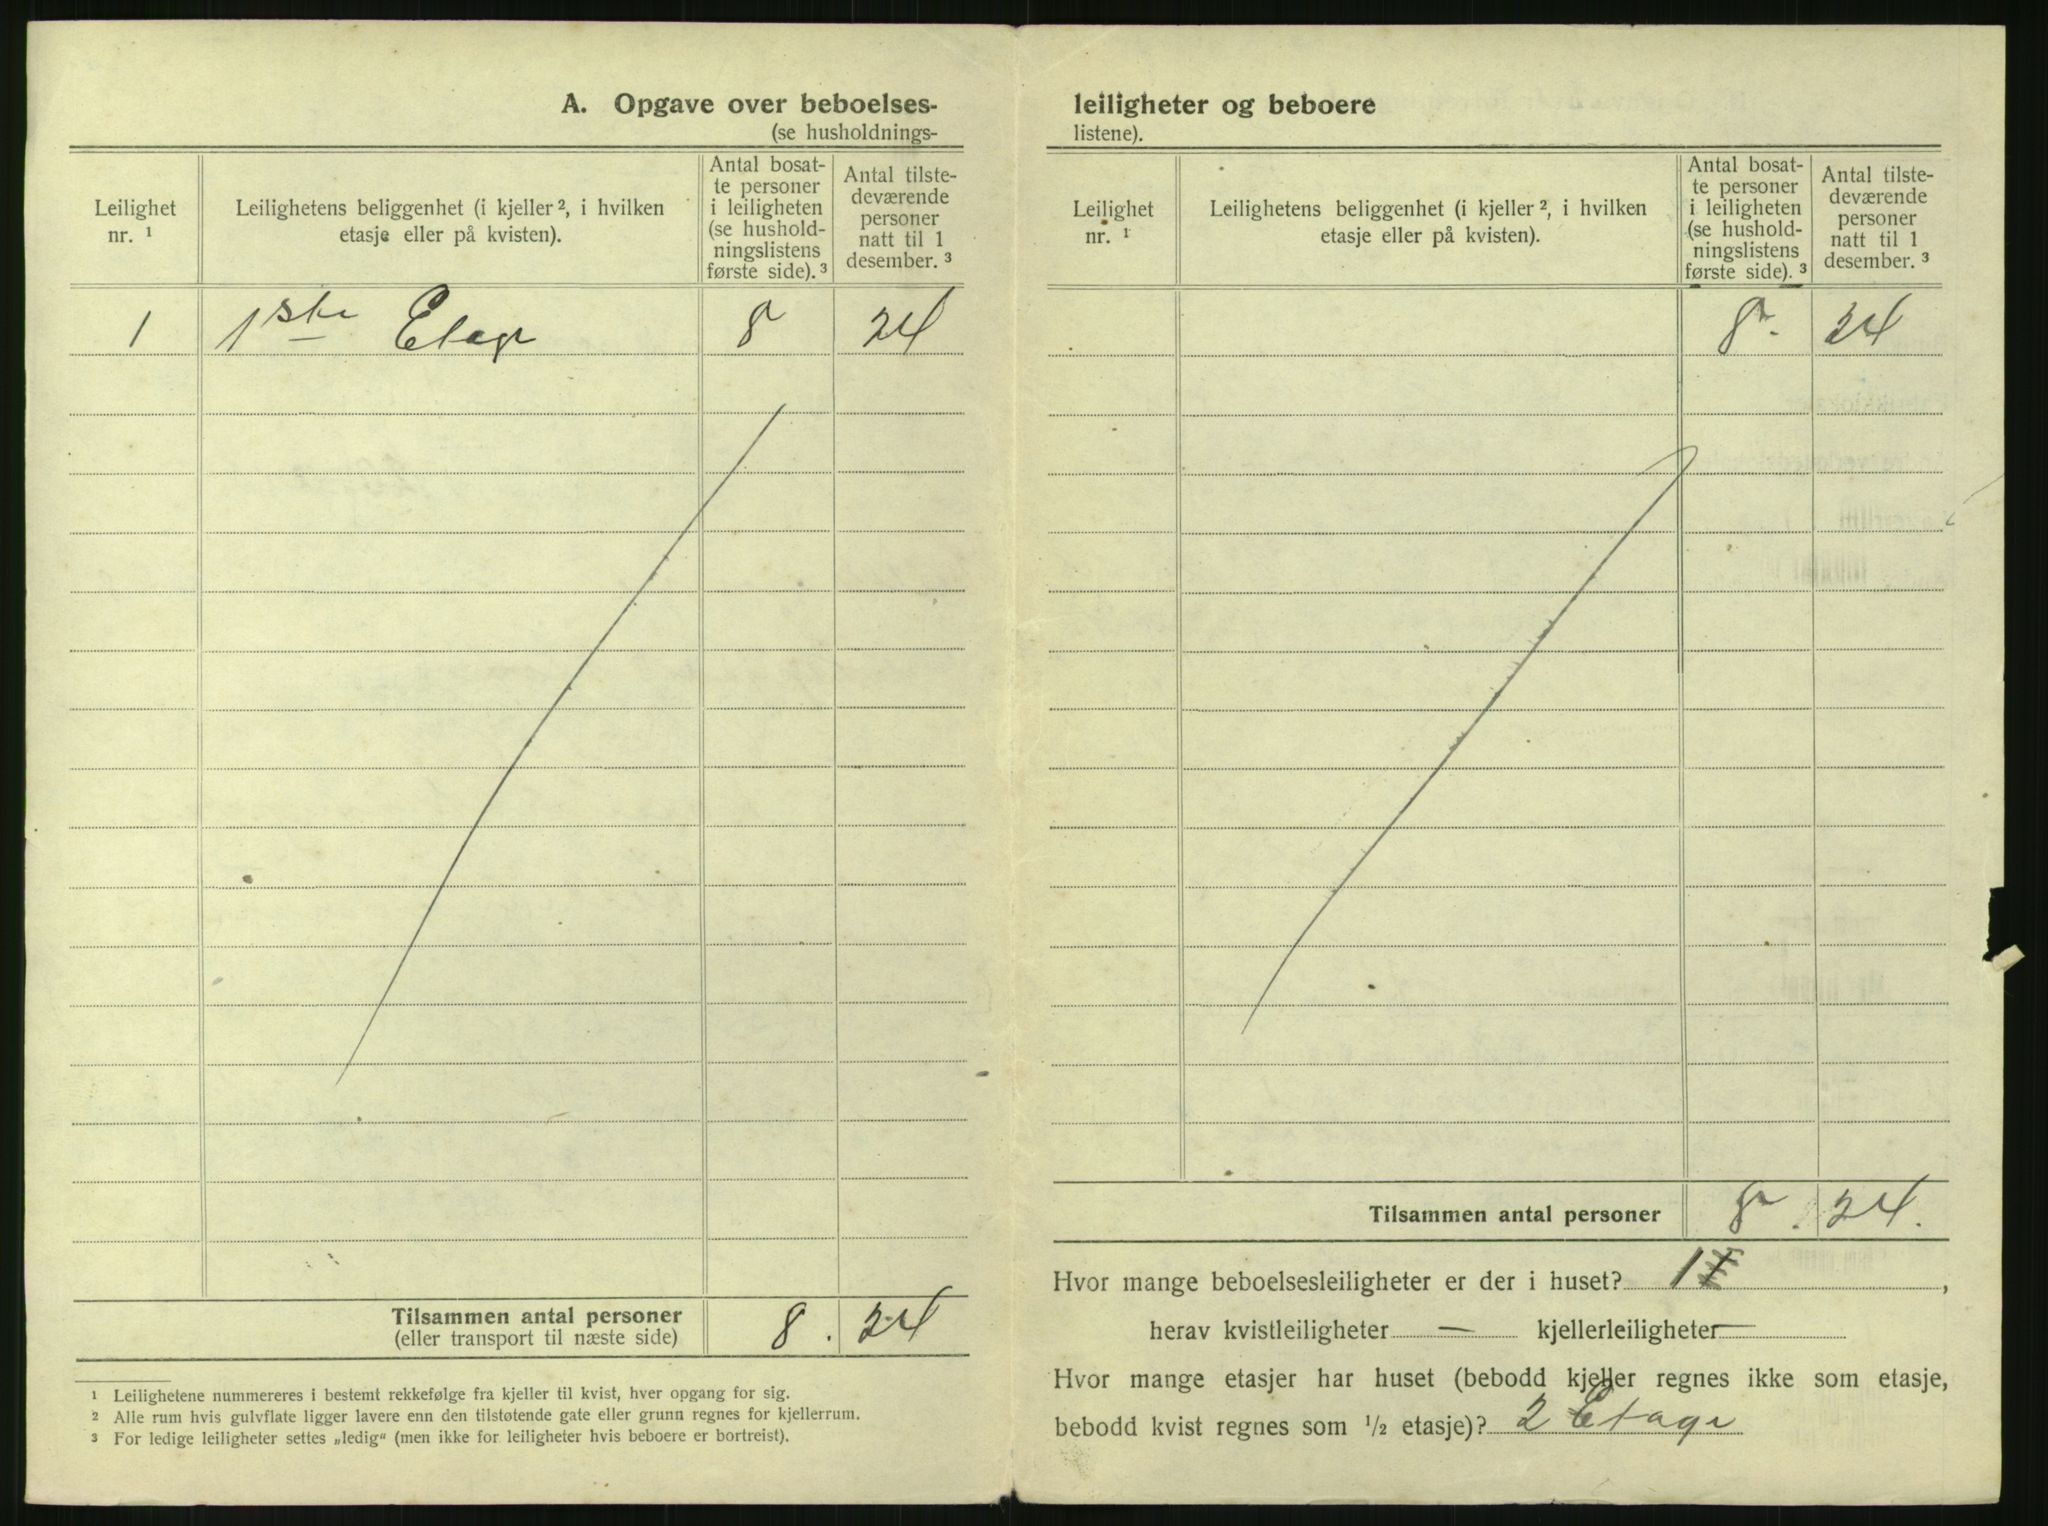 A. Opgave over beboelses-
(se husholdnings-
Leilighet
nr. ¹
Leilighetens beliggenhet (i kjeller ², i hvilken
etasje eller på kvisten).
Antal bosat-
te personer
i leiligheten
(se hushold-
ningslistens
første side). ³
Antal tilste-
deværende
personer
natt til 1
desember. ³
1 1ste Etage 8 24
Tilsammen antal personer 8. 24
(eller transport til næste side)
¹ Leilighetene nummereres i bestemt rekkefølge fra kjeller til kvist, hver opgang for sig.
² Alle rum hvis gulvflate ligger lavere enn den tilstøtende gate eller grunn regnes for kjellerrum.
³ For ledige leiligheter settes „ledig“ (men ikke for leiligheter hvis beboere er bortreist).
leiligheter og beboere
listene).
Leilighet
nr. ¹
Leilighetens beliggenhet (i kjeller ², i hvilken
etasje eller på kvisten).
Antal bosat-
te personer
i leiligheten
(se hushold-
ningslistens
første side). ³
Antal tilste-
deværende
personer
natt til 1
desember. ³
8. 24
Tilsammen antal personer 8. 24.
Hvor mange beboelsesleiligheter er der i huset? 1 ,
herav kvistleiligheter — kjellerleiligheter —
Hvor mange etasjer har huset (bebodd kjeller regnes ikke som etasje,
bebodd kvist regnes som ½ etasje)? 2 Etage